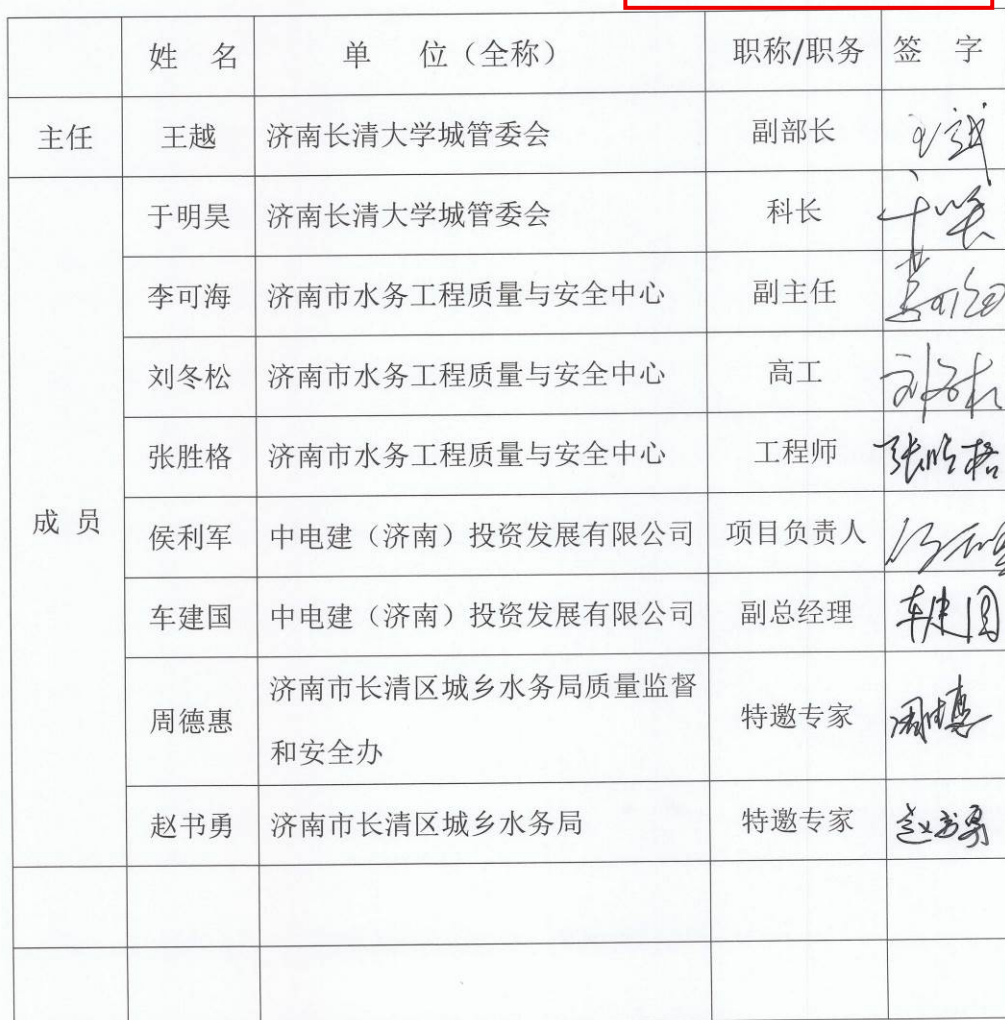 姓 名 单 位（全称） 职称/职务 签 字
主任 王越 济南长清大学城管委会 副部长
于明昊 济南长清大学城管委会 科长
李可海 济南市水务工程质量与安全中心 副主任
刘冬松 济南市水务工程质量与安全中心 高工 刘冬松
张胜格 济南市水务工程质量与安全中心 工程师 张胜格
成 员 侯利军 中电建（济南）投资发展有限公司 项目负责人
车建国 中电建（济南）投资发展有限公司 副总经理 车建国
周德惠 济南市长清区城乡水务局质量监督 特邀专家 周德惠
和安全办
赵书勇 济南市长清区城乡水务局 特邀专家 赵书勇